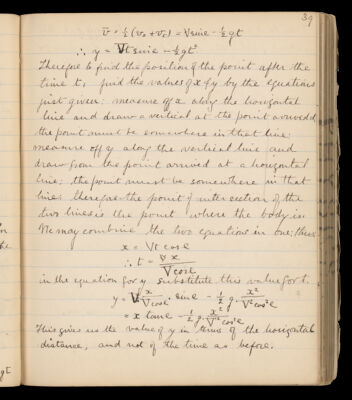 39
v̄ = ½ (v₀ + v₁) = V sin e - ½ gt
∴ y = Vt sin e - ½ gt²
Therefore to find the position of the point after the
time t, find the values of x & y by the equations
just given: measure off x along the horizontal
line and draw a vertical at the point arrived at
the point must be somewhere in that line:
measure off y along the vertical line and
draw from the point arrived at a horizontal
line; the point must be somewhere in that
line: therefore the point of intersection of the
two lines is the point where the body is.
We may combine the two equations in one; thus
x = Vt cos e
∴ t = x / V cos e
in the equation for y substitute this value for t.
y = V x / V cos e . sin e - 1/2 g . x² / V² cos² e
= x tan e - 1/2 g . x² / V² cos² e
This gives us the value of y in terms of the horizontal
distance, and not of the time as before.